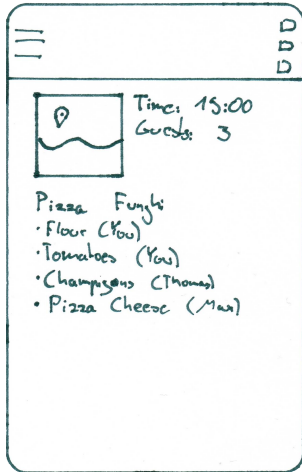 Time: 15:00
Guests: 3
Pizza Funghi
• Flour (You)
• Tomatoes (You)
• Champigons (Thomas)
• Pizza Cheese (Max)